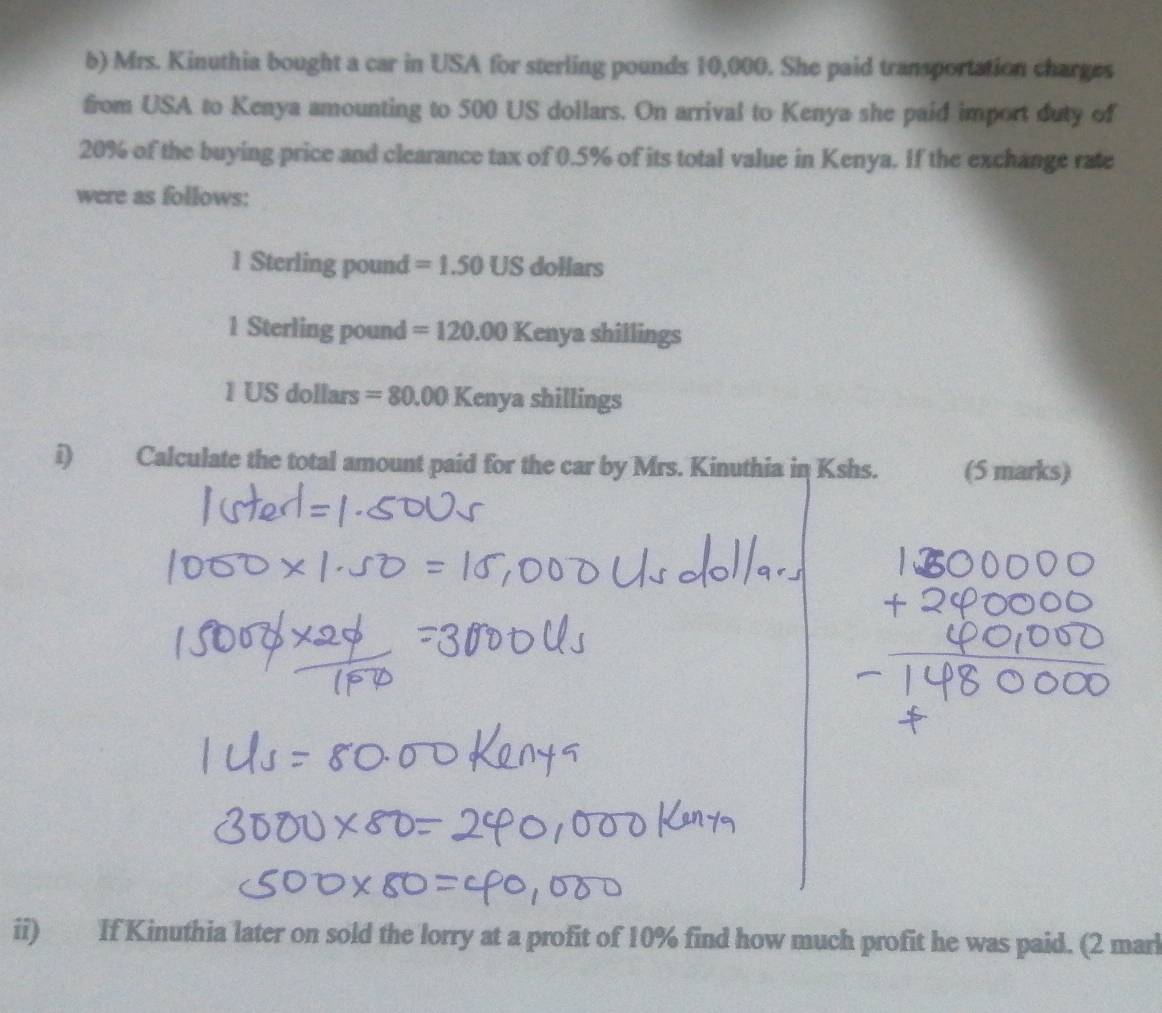 b) Mrs. Kinuthia bought a car in USA for sterling pounds 10,000. She paid transportation charges
from USA to Kenya amounting to 500 US dollars. On arrival to Kenya she paid import duty of
20% of the buying price and clearance tax of 0.5% of its total value in Kenya. If the exchange rate
were as follows:
1 Sterling pound = 1.50 US dollars
1 Sterling pound = 120.00 Kenya shillings
1 US dollars = 80.00 Kenya shillings
i) Calculate the total amount paid for the car by Mrs. Kinuthia in Kshs. (5 marks)
1 sterl = 1.50 Us
1000 × 1.50 = 15,000 Us dollars
15000 × 20 = 3000 Us
100
1 Us = 80.00 Kenya
3000 × 80 = 240,000 Kenya
500 × 80 = 40,000
1200000
+ 240000
40,000
- 1480000
+
ii) If Kinuthia later on sold the lorry at a profit of 10% find how much profit he was paid. (2 mark